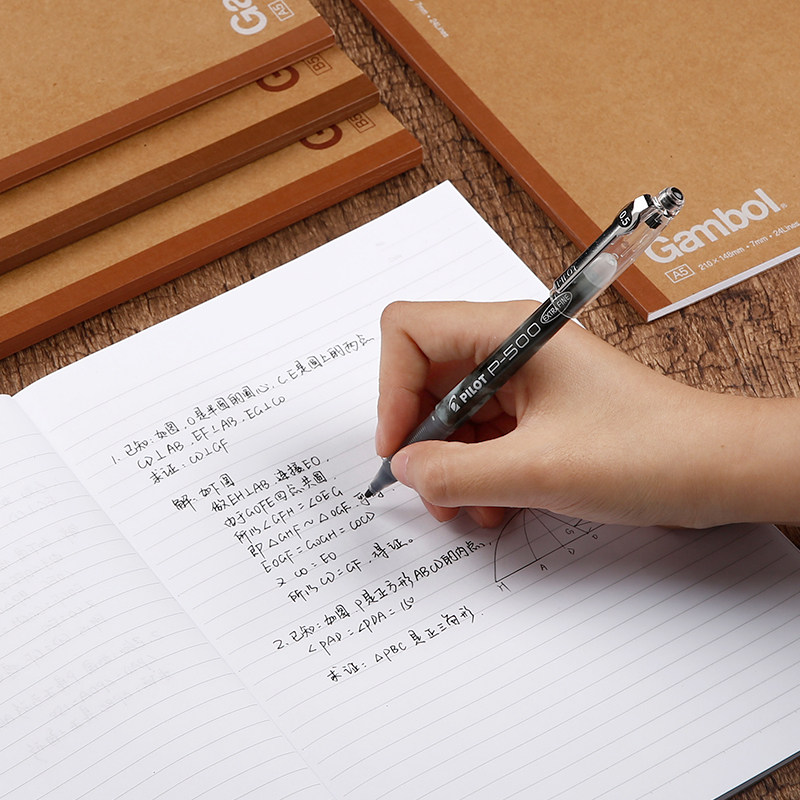 Ga
A5
G
B5
G
B5
7mm • 24Lines
Gambol
A5 210 × 148mm • 7mm • 24Lines
0.5
PILOT
PILOT P-500 EXTRA FINE
1. 已知:如图,O是半圆的圆心,C E是圆上的两点
CD⊥AB, EF⊥AB, EG⊥CO
求证: CD⊥GF
解: 如下图 做EH⊥AB, 连接EO.
由于GOFE四点共圆.
所以∠GFH=∠OEG
即△GHF∽△OGE.
EOGF=GOGH=COCD
又 CO=EO
所以CD=GF, 得证。
2. 已知:如图 P是正方形ABCD的内点,
∠PAD=∠PDA=
求证: △PBC是正三角形.
H A D D
G